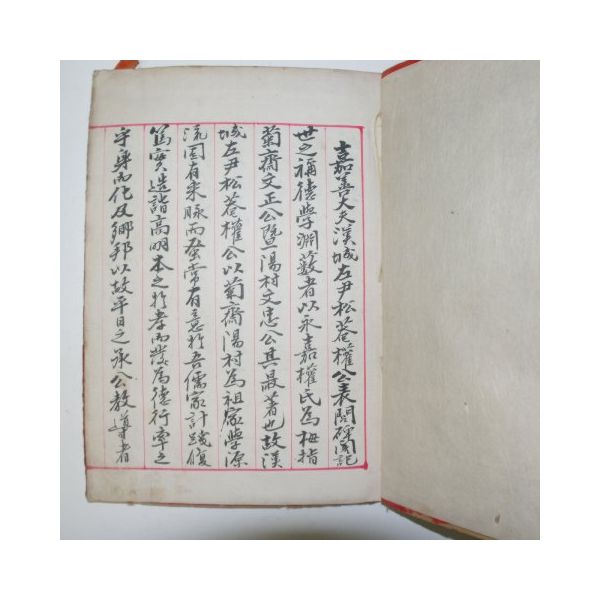 嘉善大夫漢城左尹松菴權公表閭碑閣記
世之稱德學淵藪者以永嘉權氏爲拇指
菊齋文正公暨陽村文忠公其最著也故漢
城左尹松菴權公以菊齋陽村爲祖家學源
流固有來脉而發常有意於吾儒家計踐履
篤實造詣高明本之於孝而發爲德行率之
守身而化及鄉邦以故平日之承公教導者